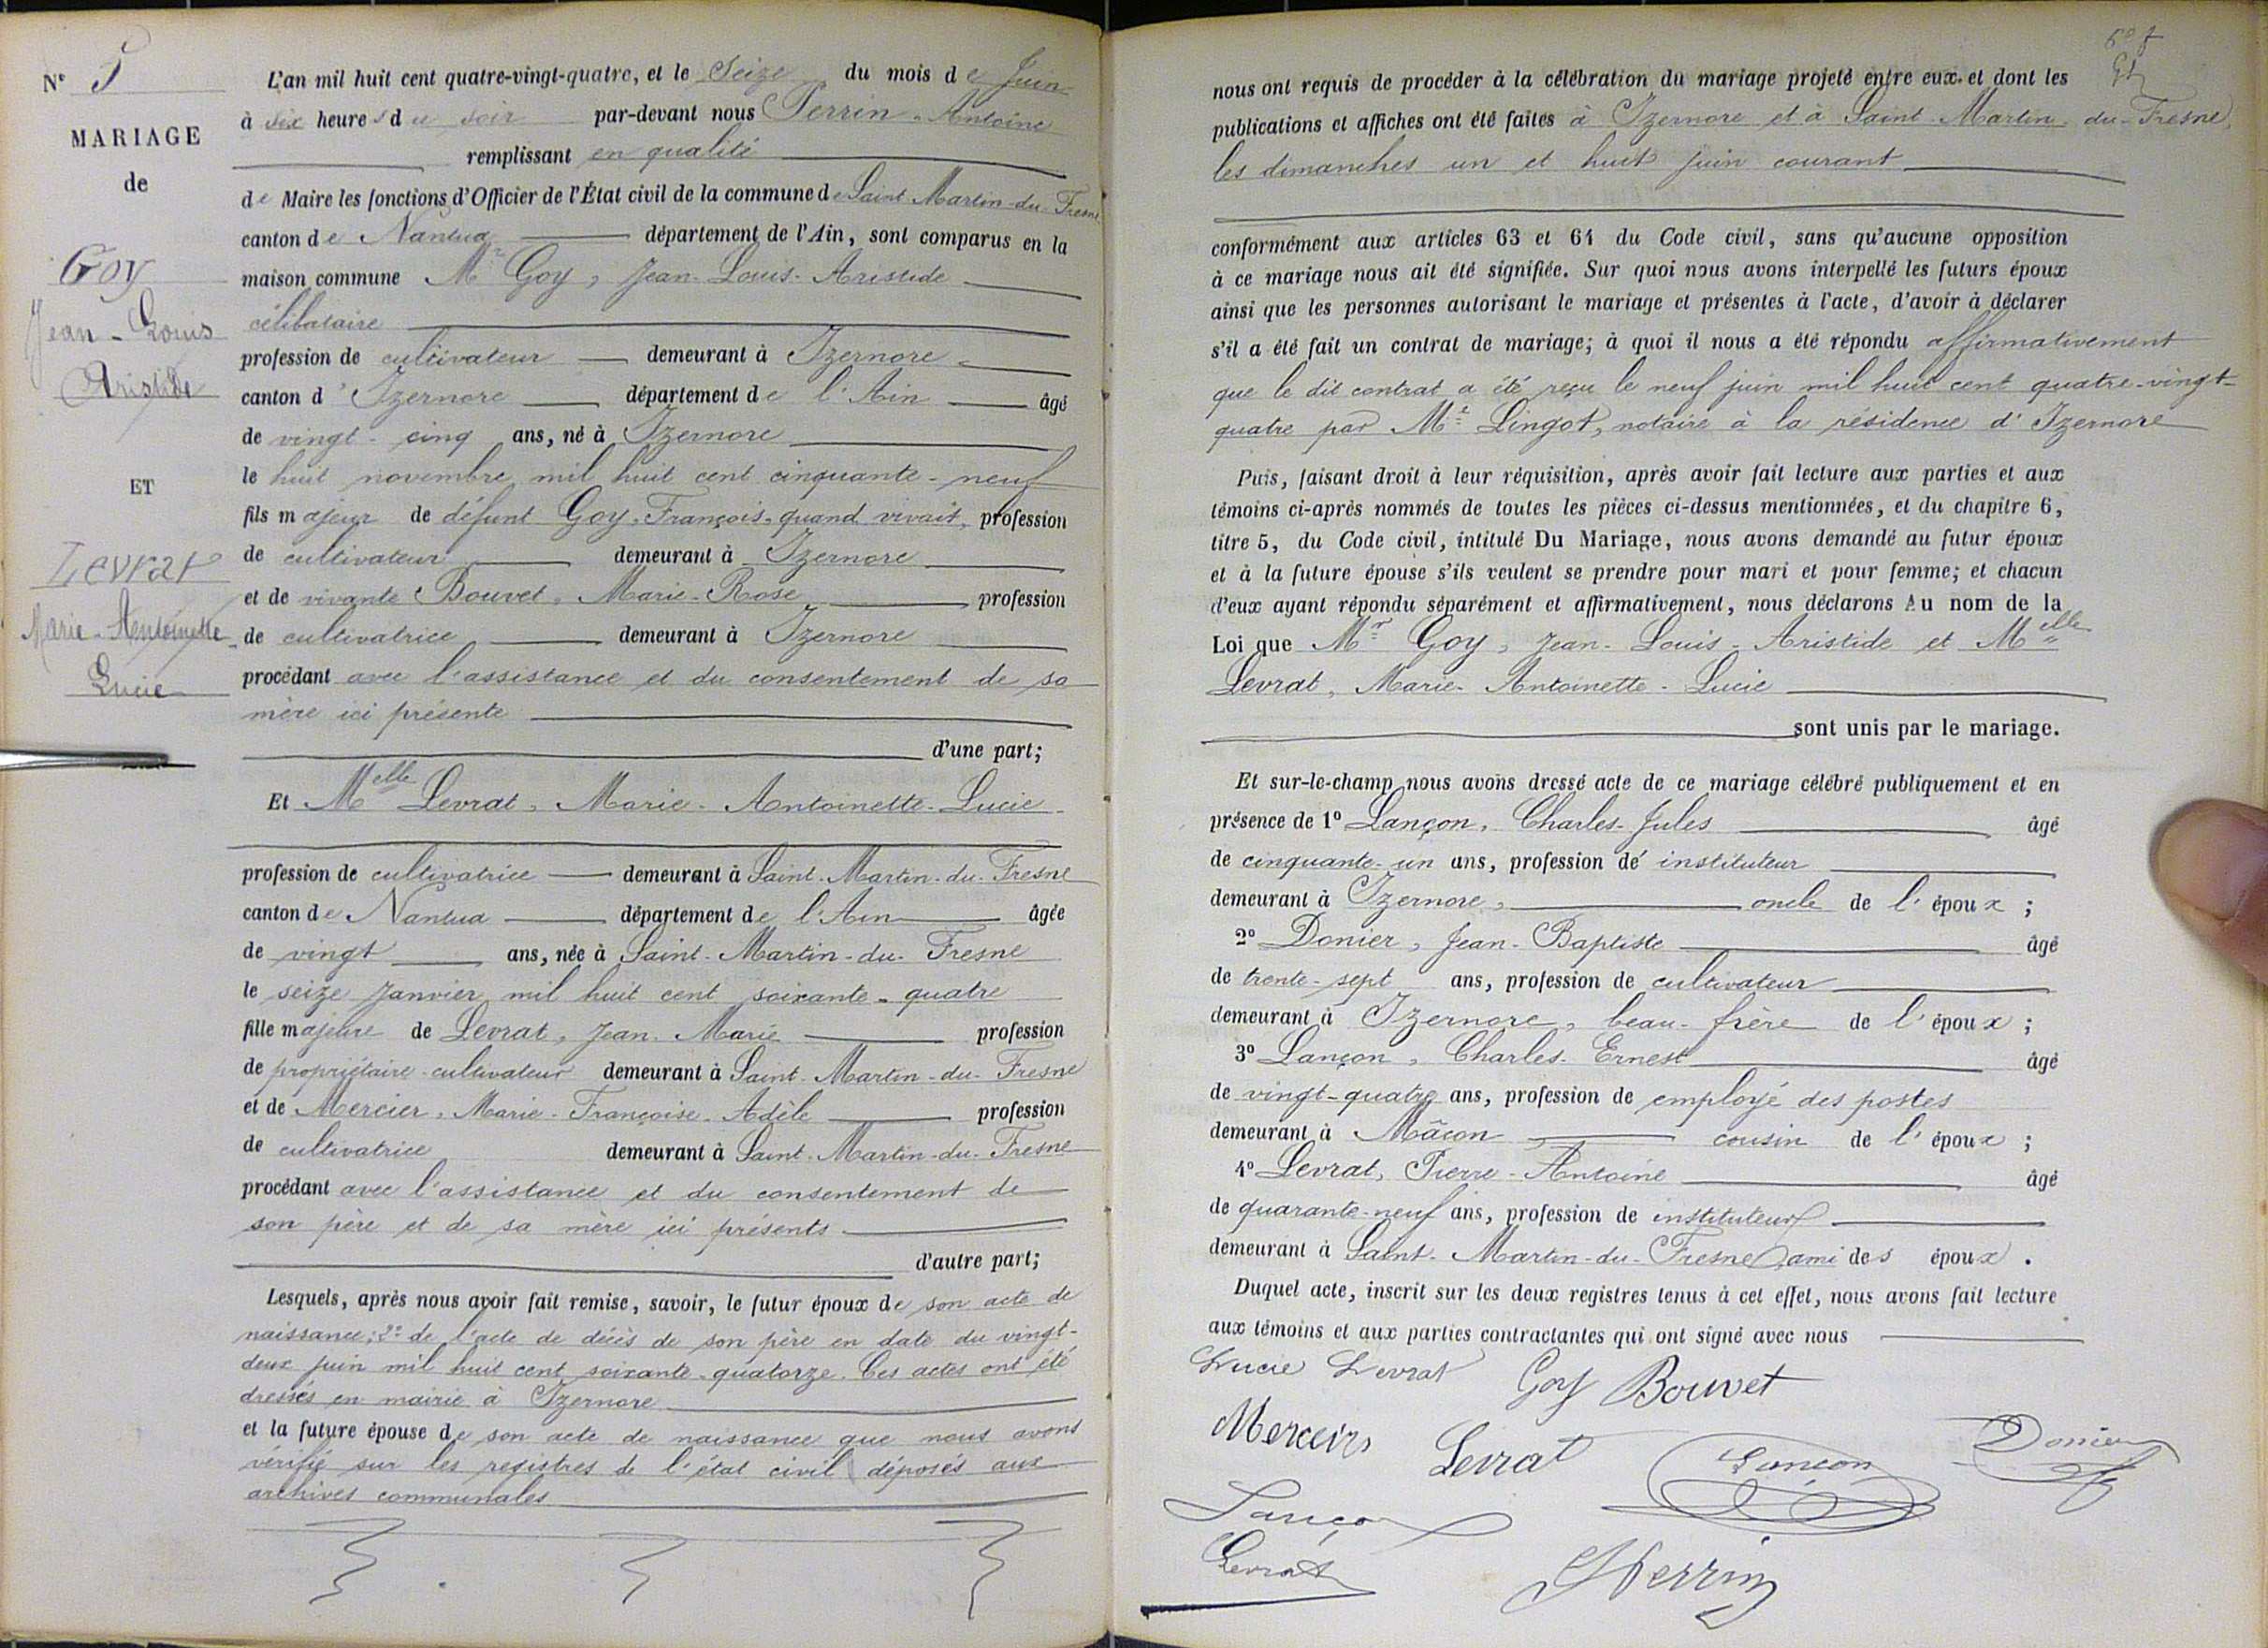 N° 5
MARIAGE
de
Goy
Jean-Louis
Aristide
ET
Levrat
Marie-Antoinette
Lucie
L'an mil huit cent quatre-vingt-quatre, et le Seize du mois de Juin
à six heures du soir par-devant nous Perrin, Antoine
remplissant en qualité
de Maire les fonctions d'Officier de l'État civil de la commune de Saint-Martin-du-Fresne
canton de Nantua département de l'Ain, sont comparus en la
maison commune Mr Goy, Jean-Louis-Aristide
célibataire
profession de cultivateur demeurant à Izernore
canton d'Izernore département de l'Ain âgé
de vingt-cinq ans, né à Izernore
le huit novembre mil huit cent cinquante-neuf
fils majeur de défunt Goy, François, quand vivait, profession
de cultivateur demeurant à Izernore
et de vivante Bouvet, Marie-Rose profession
de cultivatrice demeurant à Izernore
procédant avec l'assistance et du consentement de sa
mère ici présente
d'une part;
Et Melle Levrat, Marie-Antoinette-Lucie
profession de cultivatrice demeurant à Saint-Martin-du-Fresne
canton de Nantua département de l'Ain âgée
de vingt ans, née à Saint-Martin-du-Fresne
le seize janvier mil huit cent soixante-quatre
fille majeure de Levrat, Jean-Marie profession
de propriétaire-cultivateur demeurant à Saint-Martin-du-Fresne
et de Mercier, Marie-Françoise-Adèle profession
de cultivatrice demeurant à Saint-Martin-du-Fresne
procédant avec l'assistance et du consentement de
son père et de sa mère ici présents
d'autre part;
Lesquels, après nous avoir fait remise, savoir, le futur époux de son acte de
naissance; 2° de l'acte de décès de son père en date du vingt-
deux juin mil huit cent soixante-quatorze. Ces actes ont été
dressés en mairie à Izernore
et la future épouse de son acte de naissance que nous avons
vérifié sur les registres de l'état civil déposés aux
archives communales
nous ont requis de procéder à la célébration du mariage projeté entre eux et dont les
publications et affiches ont été faites à Izernore et à Saint-Martin-du-Fresne,
les dimanches un et huit juin courant
conformément aux articles 63 et 64 du Code civil, sans qu'aucune opposition
à ce mariage nous ait été signifiée. Sur quoi nous avons interpellé les futurs époux
ainsi que les personnes autorisant le mariage et présentes à l'acte, d'avoir à déclarer
s'il a été fait un contrat de mariage; à quoi il nous a été répondu affirmativement
que le dit contrat a été reçu le neuf juin mil huit cent quatre-vingt-
quatre par Me Lingot, notaire à la résidence d'Izernore
Puis, faisant droit à leur réquisition, après avoir fait lecture aux parties et aux
témoins ci-après nommés de toutes les pièces ci-dessus mentionnées, et du chapitre 6,
titre 5, du Code civil, intitulé Du Mariage, nous avons demandé au futur époux
et à la future épouse s'ils veulent se prendre pour mari et pour femme; et chacun
d'eux ayant répondu séparément et affirmativement, nous déclarons Au nom de la
Loi que Mr Goy, Jean-Louis-Aristide et Melle
Levrat, Marie-Antoinette-Lucie
sont unis par le mariage.
Et sur-le-champ nous avons dressé acte de ce mariage célébré publiquement et en
présence de 1° Lançon, Charles-Jules âgé
de cinquante-un ans, profession dé instituteur
demeurant à Izernore, oncle de l'époux ;
2° Donier, Jean-Baptiste âgé
de trente-sept ans, profession de cultivateur
demeurant à Izernore, beau-frère de l'époux ;
3° Lançon, Charles-Ernest âgé
de vingt-quatre ans, profession de employé des postes
demeurant à Mâcon, cousin de l'époux ;
4° Levrat, Pierre-Antoine âgé
de quarante-neuf ans, profession de instituteur
demeurant à Saint-Martin-du-Fresne, ami des époux .
Duquel acte, inscrit sur les deux registres tenus à cet effet, nous avons fait lecture
aux témoins et aux parties contractantes qui ont signé avec nous
Lucie Levrat Goy Bouvet
Merceirs Levrat Lançon Donier
Lançon
Levrat APerrin